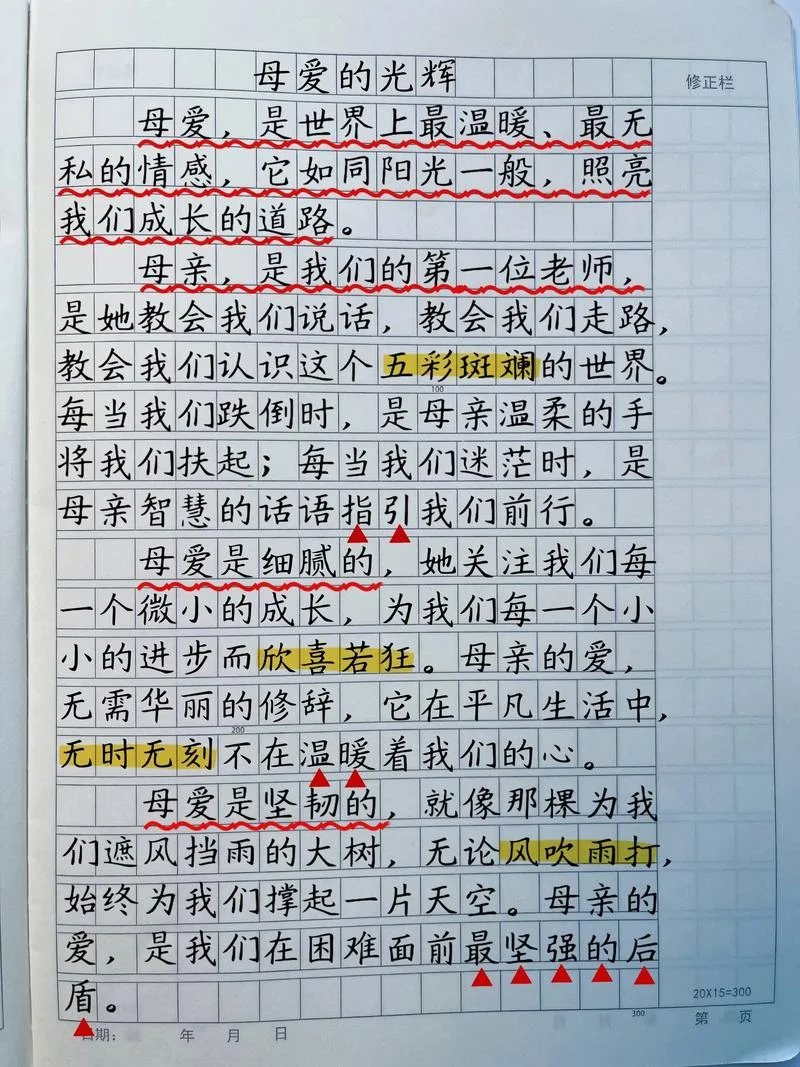 母爱的光辉
修正栏
母爱，是世界上最温暖、最无
私的情感，它如同阳光一般，照亮
我们成长的道路。
母亲，是我们的第一位老师，
是她教会我们说话，教会我们走路，
教会我们认识这个五彩斑斓的世界。
100
每当我们跌倒时，是母亲温柔的手
将我们扶起；每当我们迷茫时，是
母亲智慧的话语指引我们前行。
母爱是细腻的，她关注我们每
一个微小的成长，为我们每一个小
小的进步而欣喜若狂。母亲的爱，
无需华丽的修辞，它在平凡生活中，
200
无时无刻不在温暖着我们的心。
母爱是坚韧的，就像那棵为我
们遮风挡雨的大树，无论风吹雨打，
始终为我们撑起一片天空。母亲的
爱，是我们在困难面前最坚强的后
盾。
20X15=300
300
日期： 年 月 日
第 页